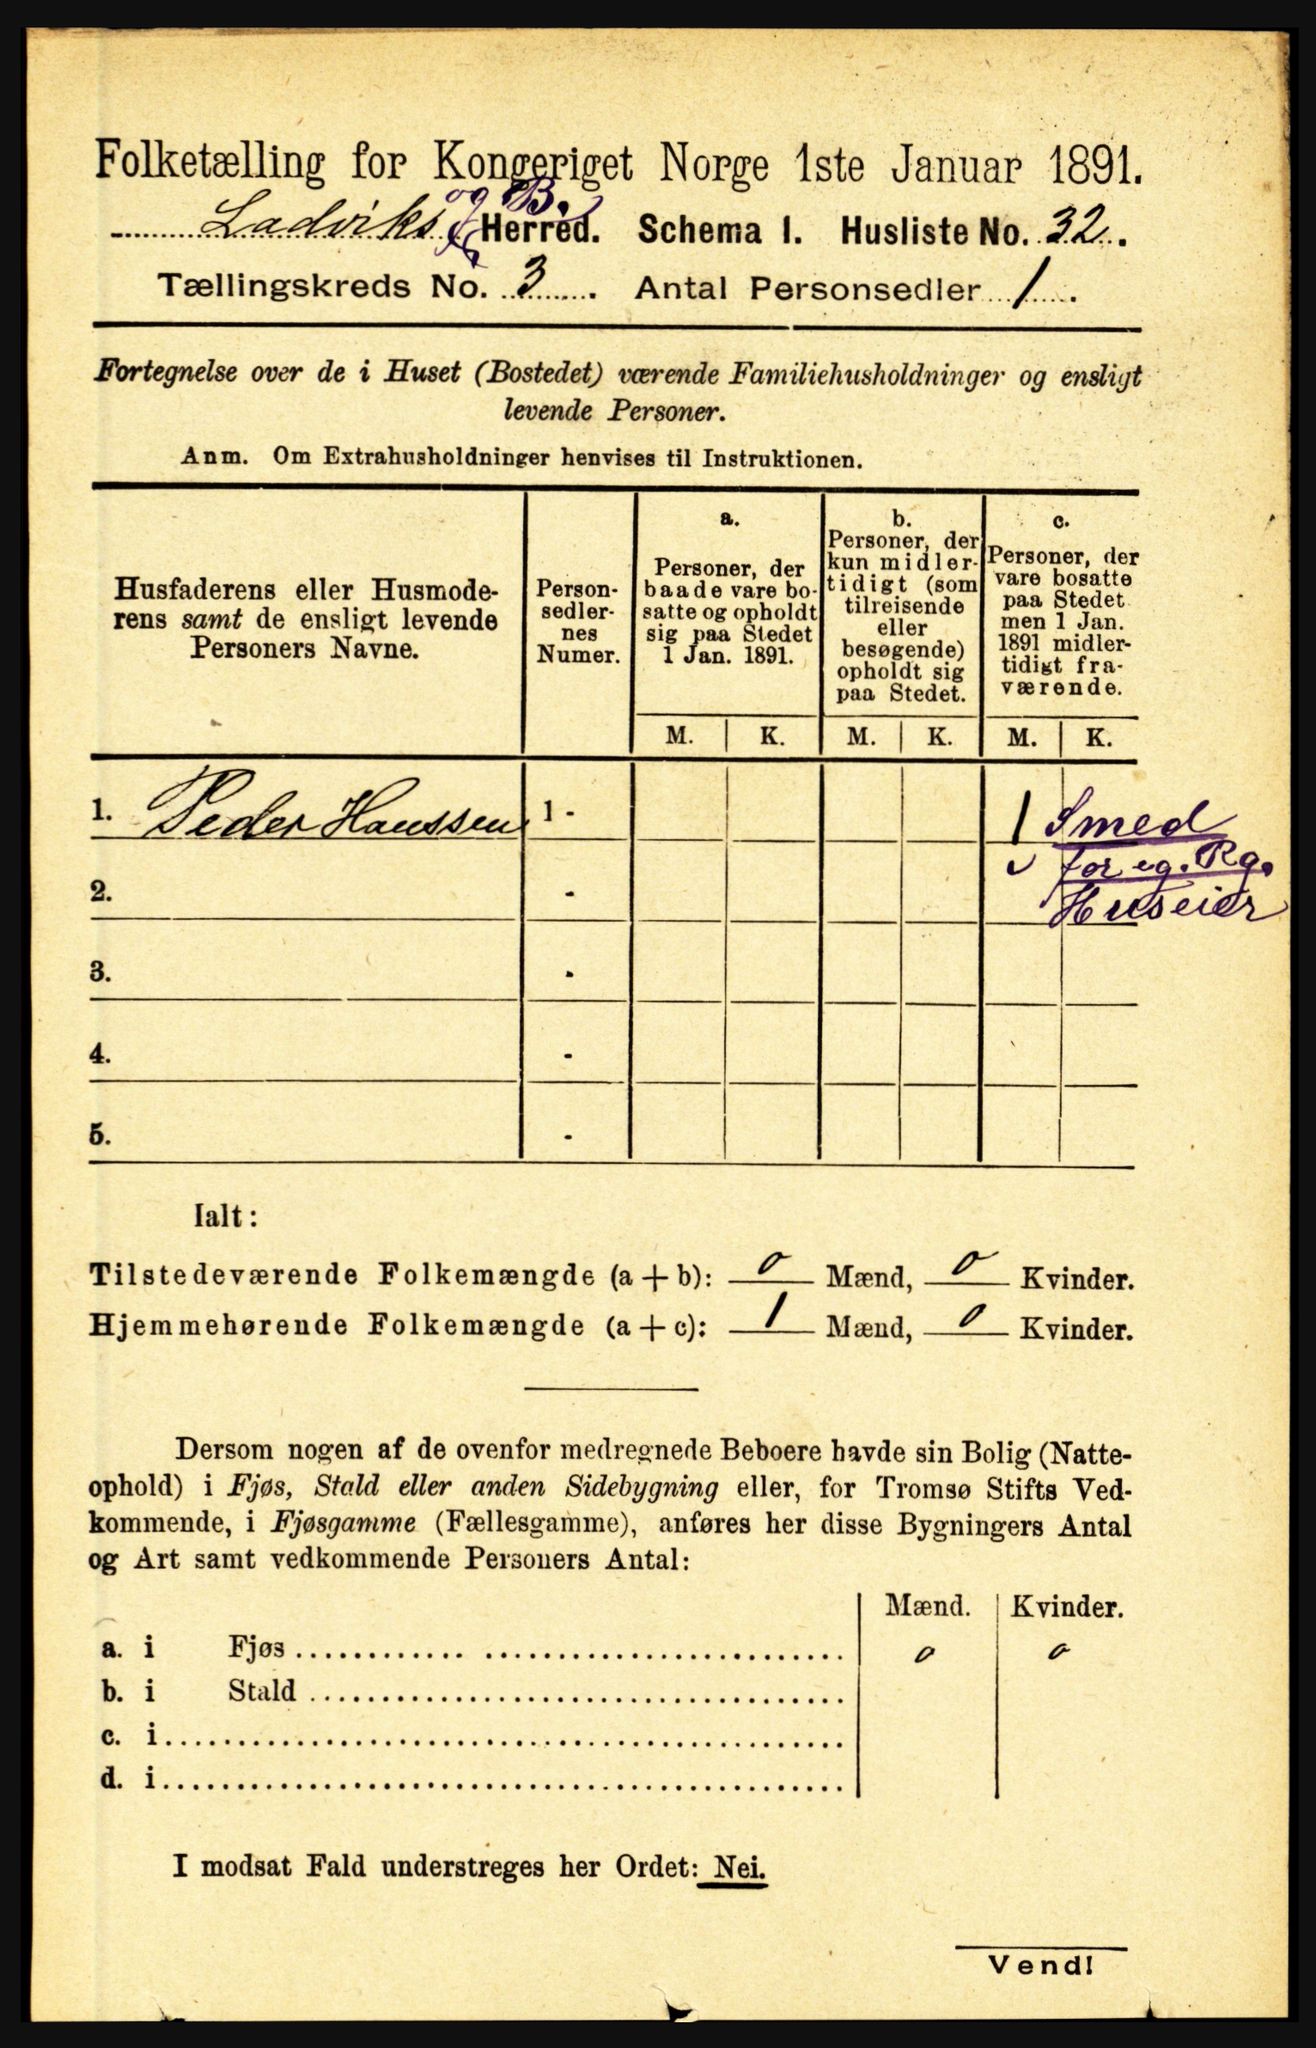 Folketælling for Kongeriget Norge 1ste Januar 1891.
og B.
Ladviks Herred. Schema 1. Husliste No. 32.
Tællingskreds No. 3. Antal Personsedler 1.
Fortegnelse over de i Huset (Bostedet) værende Familiehusholdninger og ensligt
levende Personer.
Anm. Om Extrahusholdninger henvises til Instruktionen.
Husfaderens eller Husmode-
rens samt de ensligt levende
Personers Navne.
Person-
sedler-
nes
Numer.
a.
Personer, der
baade vare bo-
satte og opholdt
sig paa Stedet
1 Jan. 1891.
b.
Personer, der
kun midler-
tidigt (som
tilreisende
eller
besøgende)
opholdt sig
paa Stedet.
c.
Personer, der
vare bosatte
paa Stedet
men 1 Jan.
1891 midler-
tidigt fra-
værende.
M. K. M. K. M. K.
1. Peder Hanssen 1 - 1 Smed
for eg. Rg.
2. - Huseier
3. -
4. -
5. -
Ialt:
Tilstedeværende Folkemængde (a + b): 0 Mænd, 0 Kvinder.
Hjemmehørende Folkemængde (a + c): 1 Mænd, 0 Kvinder.
Dersom nogen af de ovenfor medregnede Beboere havde sin Bolig (Natte-
ophold) i Fjøs, Stald eller anden Sidebygning eller, for Tromsø Stifts Ved-
kommende, i Fjøsgamme (Fællesgamme), anføres her disse Bygningers Antal
og Art samt vedkommende Personers Antal:
Mænd. Kvinder.
a. i Fjøs 0 0
b. i Stald
c. i
d. i
I modsat Fald understreges her Ordet: Nei.
Vend!